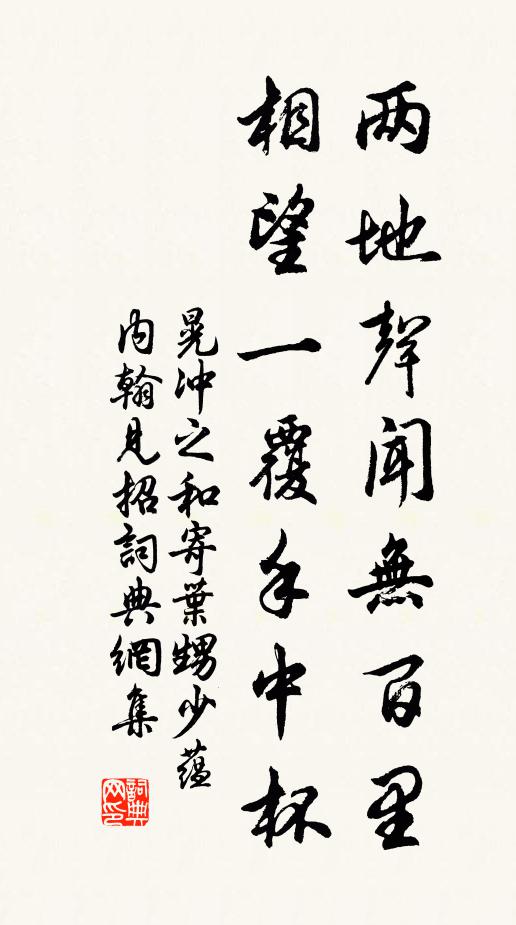 两地聲聞無百里
相望一覆手中杯
晁冲之和寄葉甥少蘊
内翰見招詞典網集
詞典網印